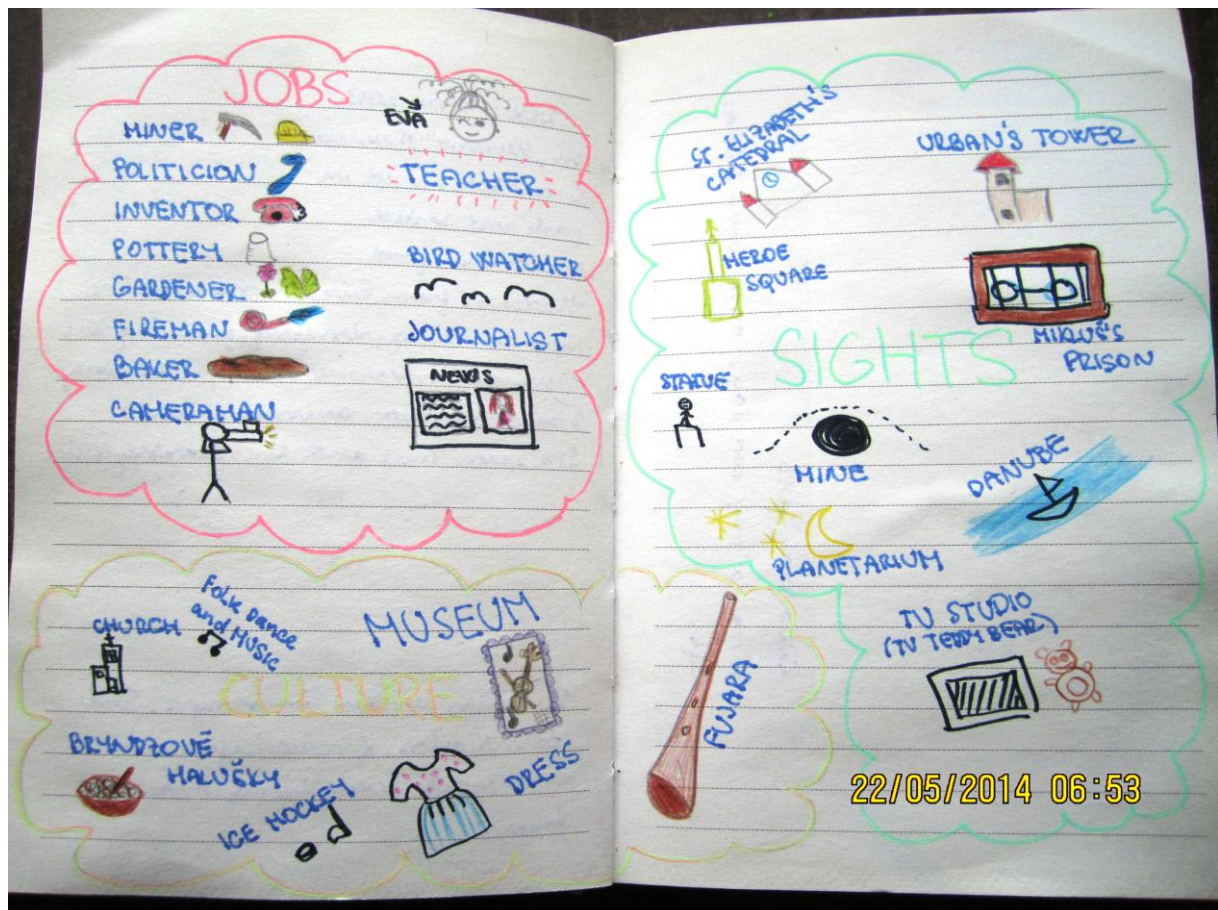 JOBS
MINER
POLITICION
INVENTOR
POTTERY
GARDENER
FIREMAN
BAKER
CAMERAMAN
EVA
TEACHER
BIRD WATCHER
JOURNALIST
NEWS
CHURCH
FOLK DANCE
and MUSIC
MUSEUM
CULTURE
BRYNDZOVÉ
HALUŠKY
ICE HOCKEY
DRESS
FUJARA
ST. ELIZABETH'S
CATEDRAL
URBAN'S TOWER
HEROE
SQUARE
MIKLUŠ'S
PRISON
SIGHTS
STATUE
MINE
DANUBE
PLANETARIUM
TV STUDIO
(TV TEDDY BEAR)
22/05/2014 06:53